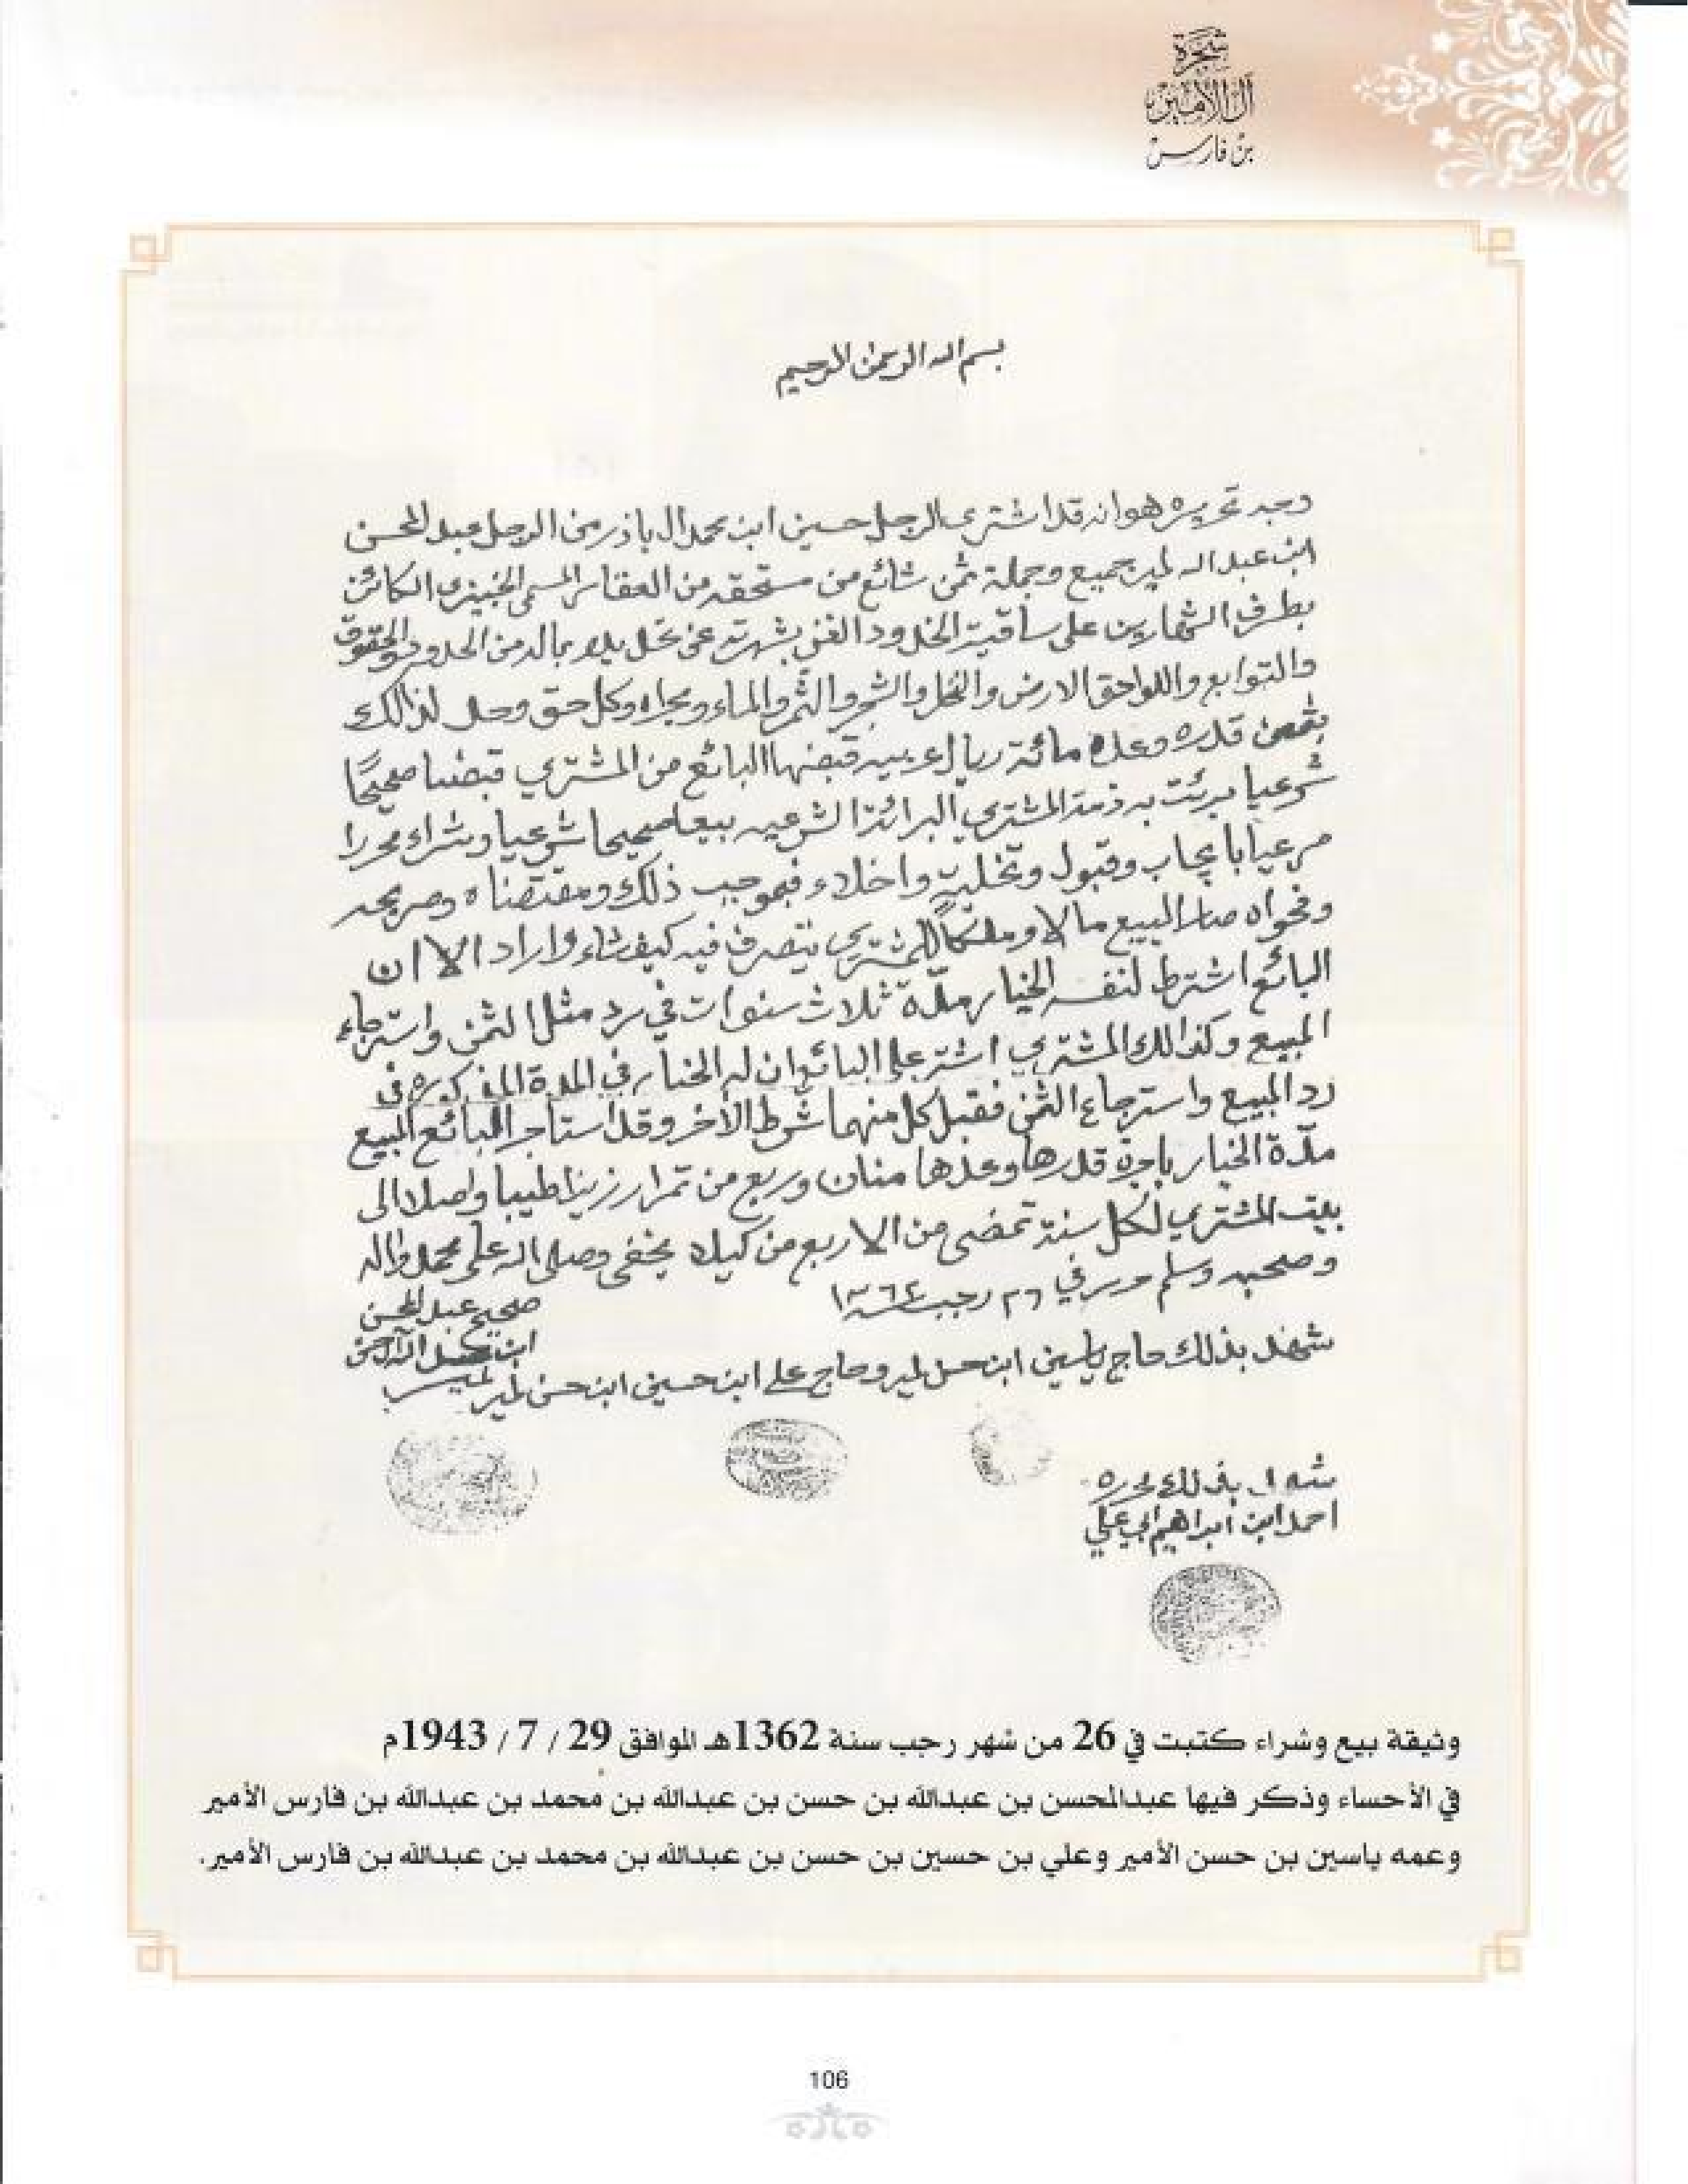 شجرة
آل الأمير
بن فارس
بسم الله الرحمن الرحيم
وجه تحريره هو انه قد اشترى الرجل حسين ابن محمد ال باذر من الرجل عبد المحسن
ابن عبد الله لمير جميع وجملة ثمن شائع من مستحقه من العقار المسمى الكائن
بطرف الشهارين على ساقية الخدود الغني بشهرته عن تحديد بماله من الحدود والحقوق
والتوابع واللواحق الارض والنخل والشجر والثمر والماء ومجراه وكل حق وحد لذالك
بثمن قدره وعده مائة ريال عربيه قبضها البائع من المشتري قبضا صحيحًا
شرعيا برئت به ذمة المشتري البرائة الشرعيه بيعا صحيحا شرعيا وشراء محررا
مرعيا بايجاب وقبول وتخلية واخلاء فبموجب ذلك ومقتضاه وصريحه
وفحواه صار المبيع مالا وملكًا للمشتري يتصرف فيه كيف شاء واراد الا ان
البائع اشترط لنفسه الخيار مدّة ثلاث سنوات في رد مثل الثمن واسترجاع
المبيع وكذالك المشتري اشتر على البائع ان له الخيار في المدة المذكوره في
رد المبيع واسترجاع الثمن فقبل كل منهما شرط الأخر وقد استاجر البائع المبيع
مدّة الخيار باجرة قدرها وعدها منان وربع من تمرا رزيزا طيبا واصلا الى
بيت المشتري لكل سنة تمضى من الاربع من كيلا يخفى وصلى الله على محمد واله
وصحبه وسلم حرر في ٢٦ رجب سنة
صحيح عبد المحسن
ابن عبد الله
لمير
شهد بذلك حاج ياسين ابن حسن لمير وحاج علي ابن حسين ابن حسن لمير
شهد بذلك محرره
احمد ابن ابراهيم
وثيقة بيع وشراء كتبت في 26 من شهر رجب سنة 1362هـ الموافق 29 / 7 / 1943م
في الأحساء وذكر فيها عبدالمحسن بن عبدالله بن حسن بن عبدالله بن محمد بن عبدالله بن فارس الأمير
وعمه ياسين بن حسن الأمير وعلي بن حسين بن حسن بن عبدالله بن محمد بن عبدالله بن فارس الأمير.
106